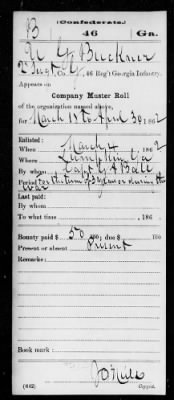 (Confederate.)
B 46 Ga.
Buckner
2 Sergt, Co. G, 46 Reg't Georgia Infantry.
Appears on
Company Muster Roll
of the organization named above,
for March 18 to April 30, 1862
Enlisted:
When March 4, 1862
Where Lumpkin Ga
By whom Capt G A Ball
Period for the term of 3 years or during the war
Last paid:
By whom
To what time , 186
Bounty paid $ 50 100; due $ 100
Present or absent Present
Remarks:
Book mark:
(642) Copyist.